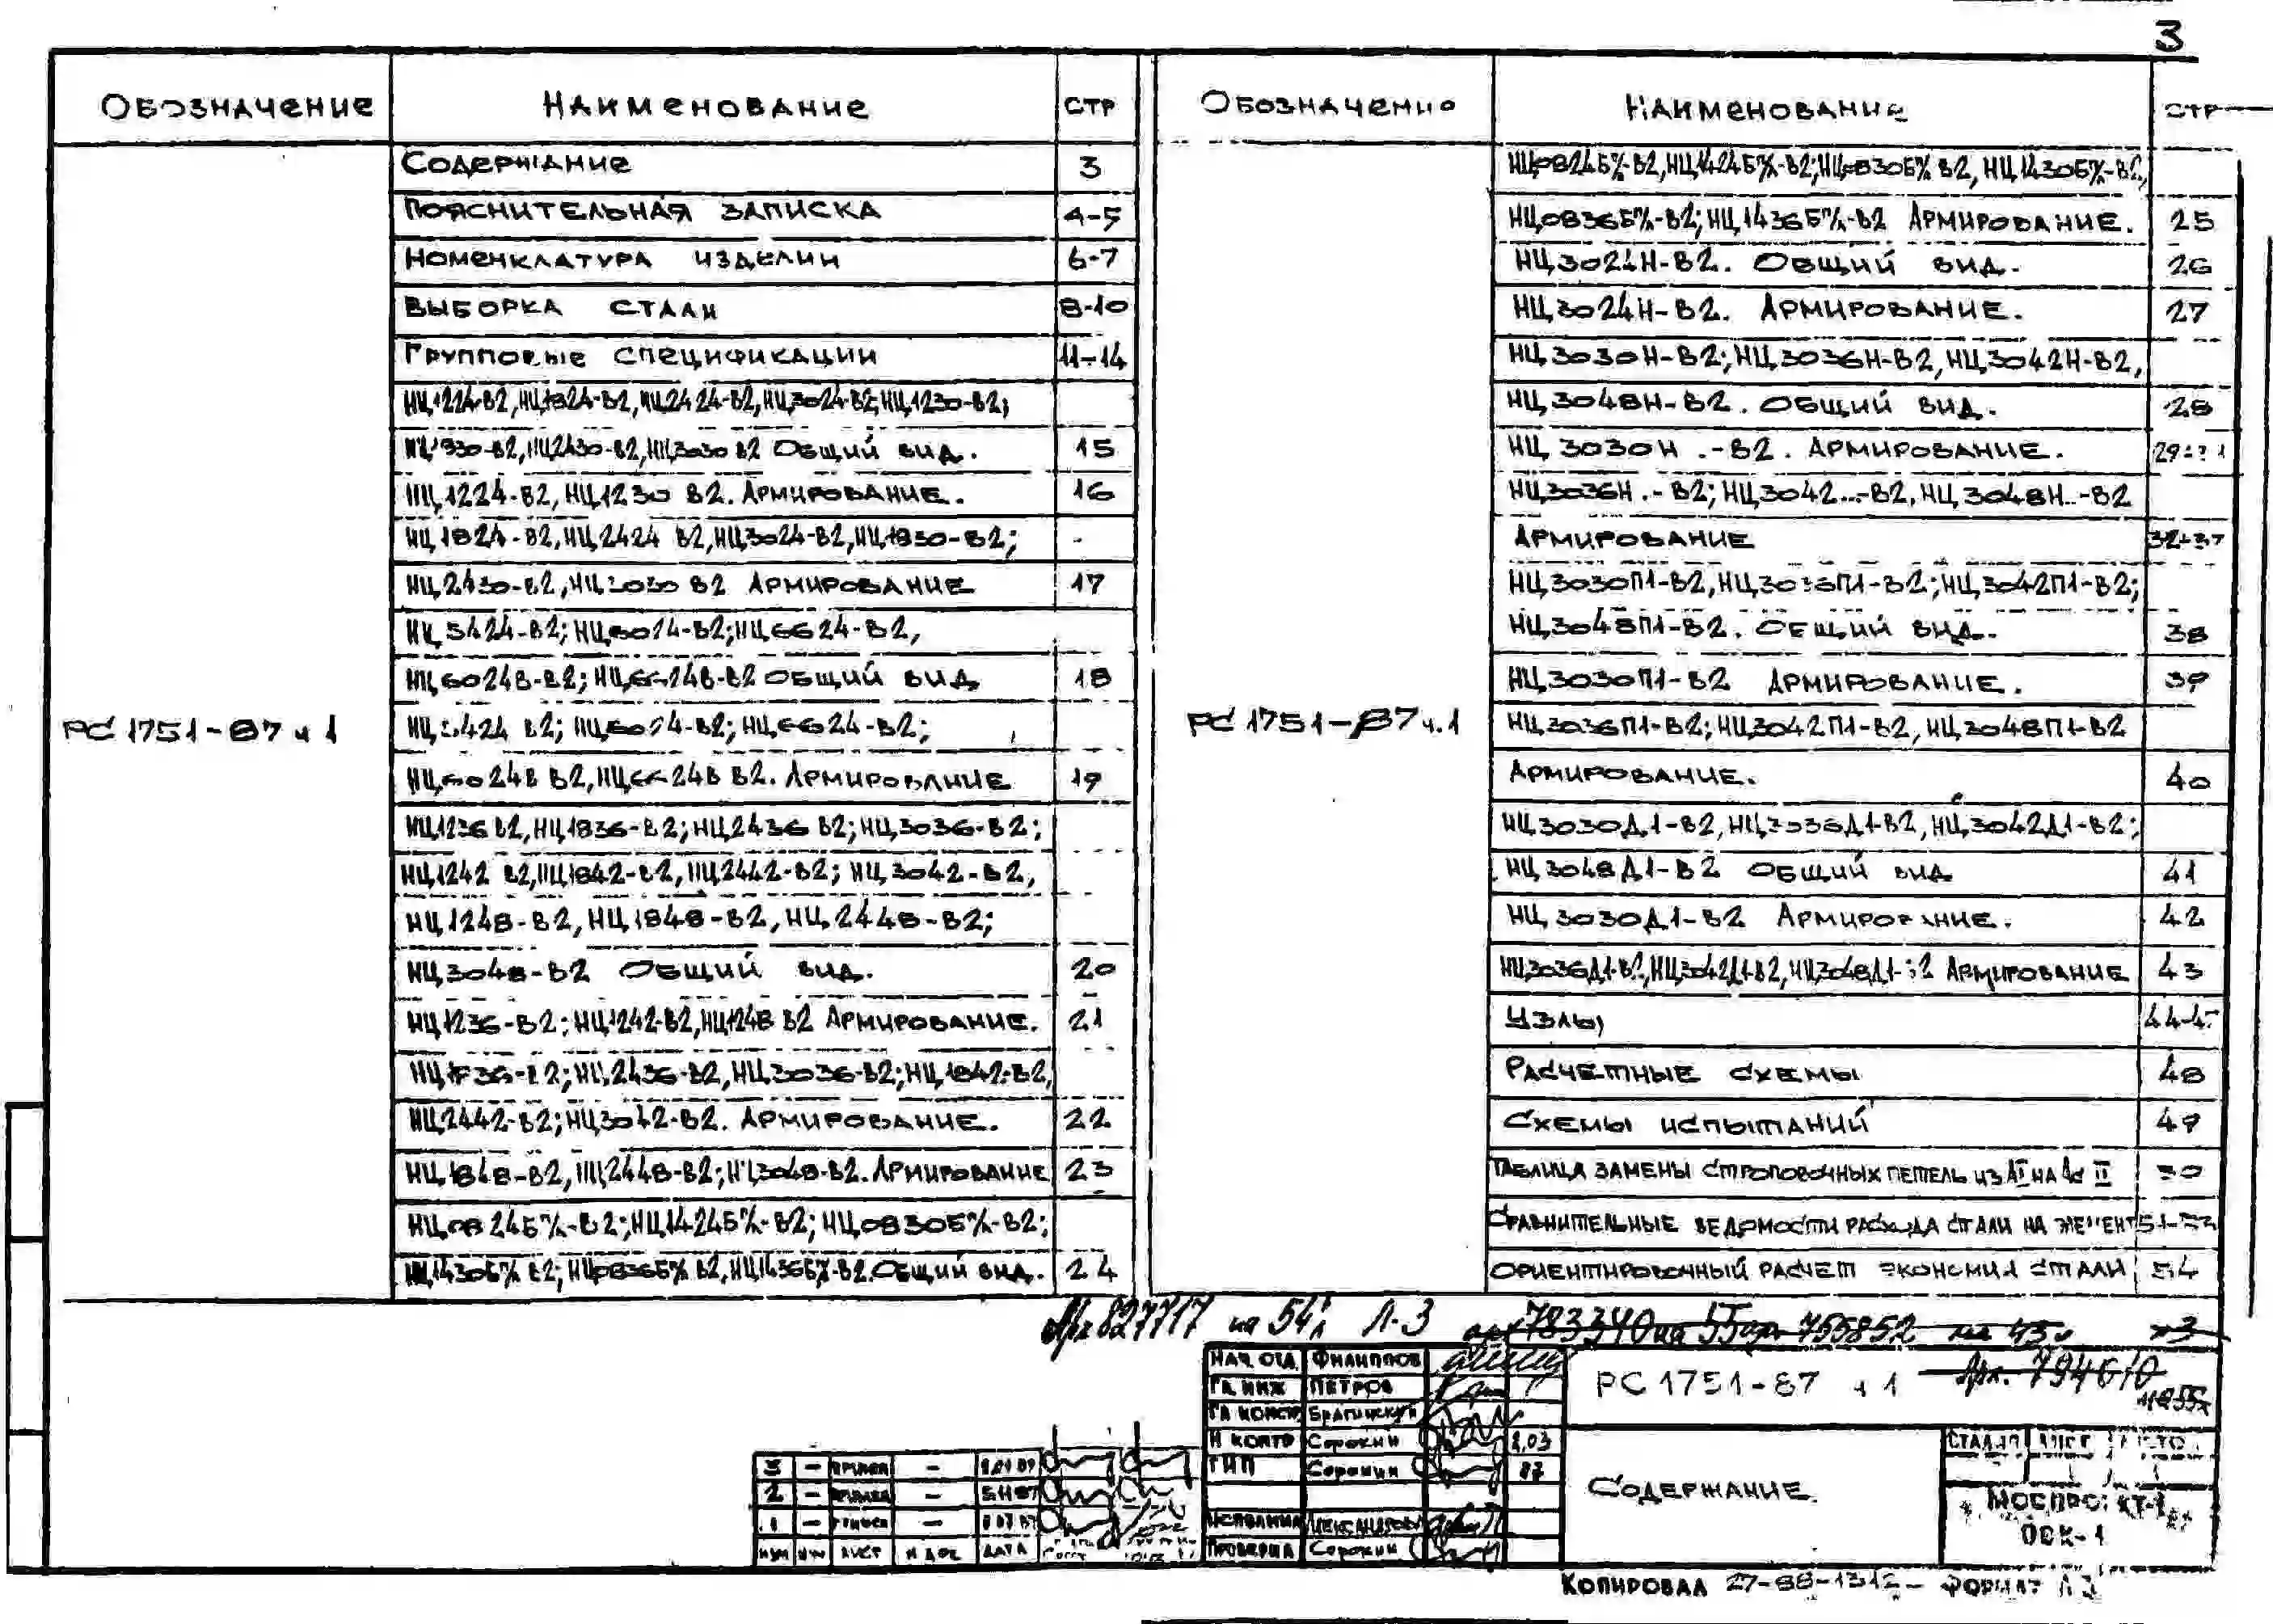 3
Обозначение Наименование стр
РС 1751-87 ч 1
Содержание 3
Пояснительная записка 4-5
Номенклатура изделий 6-7
Выборка стали 8-10
Групповые спецификации 11-14
НЦ1224-В2, НЦ1824-В2, НЦ2424-В2, НЦ3024-В2; НЦ1230-В2;
НЦ1830-В2, НЦ2430-В2, НЦ3030 В2 Общий вид. 15
НЦ1224-В2, НЦ1230 В2. Армирование. 16
НЦ1824-В2, НЦ2424 В2, НЦ3024-В2, НЦ1830-В2;
НЦ2430-В2, НЦ3030 В2 Армирование 17
НЦ5424-В2; НЦ6024-В2; НЦ6624-В2,
НЦ6024В-В2; НЦ6624В-В2 Общий вид 18
НЦ5424 В2; НЦ6024-В2; НЦ6624-В2;
НЦ6024В В2, НЦ6624В В2. Армирование 19
НЦ1236 В2, НЦ1836-В2; НЦ2436 В2; НЦ3036-В2;
НЦ1242 В2, НЦ1842-В2, НЦ2442-В2; НЦ3042-В2,
НЦ1248-В2, НЦ1848-В2, НЦ2448-В2;
НЦ3048-В2 Общий вид. 20
НЦ1236-В2; НЦ1242-В2, НЦ1248 В2 Армирование. 21
НЦ1836-В2; НЦ2436-В2, НЦ3036-В2; НЦ1842-В2,
НЦ2442-В2; НЦ3042-В2. Армирование. 22
НЦ1848-В2, НЦ2448-В2; НЦ3048-В2. Армирование 23
НЦ0824Б%-В2; НЦ1424Б%-В2; НЦ0830Б%-В2;
НЦ1430Б% В2; НЦ0836Б% В2, НЦ1436Б%-В2. Общий вид. 24
Обозначение Наименование стр
РС 1751-87 ч.1
НЦ0824Б%-В2, НЦ1424Б%-В2; НЦ0830Б% В2, НЦ1430Б%-В2,
НЦ0836Б%-В2; НЦ1436Б%-В2 Армирование. 25
НЦ3024Н-В2. Общий вид. 26
НЦ3024Н-В2. Армирование. 27
НЦ3030Н-В2; НЦ3036Н-В2, НЦ3042Н-В2,
НЦ3048Н-В2. Общий вид. 28
НЦ 3030Н .-В2. Армирование.
НЦ3036Н.-В2; НЦ3042...-В2, НЦ3048Н..-В2
Армирование
НЦ3030П1-В2, НЦ3036П1-В2; НЦ3042П1-В2;
НЦ3048П1-В2. Общий вид. 38
НЦ3030П1-В2 Армирование. 39
НЦ3036П1-В2; НЦ3042П1-В2, НЦ3048П1-В2
Армирование. 40
НЦ3030Д1-В2, НЦ3036Д1-В2, НЦ3042Д1-В2;
НЦ3048Д1-В2 Общий вид 41
НЦ3030Д1-В2 Армирование. 42
НЦ3036Д1-В2, НЦ3042Д1-В2, НЦ3048Д1-В2 Армирование 43
Узлы
Расчетные схемы 48
Схемы испытаний 49
Таблица замены строповочных петель из АI на Ас II
Сравнительные ведомости расхода стали на элемент
Ориентировочный расчет экономии стали 54
Арх 827717 на 54л Л-3 арх 783340 на 55 арх 755852 на 45л
Нач. отд. Филиппов
Гл инж Петров
Гл констр Брагинский
Н контр Сорокин 2,03
ГИП Сорокин 87
Исполнил Александрова
Проверил Сорокин
РС 1751-87 ч 1 Арх. 794610
Содержание.
стадия лист листов
Моспроект-1
ОСК-1
3 — —
2 — —
1 — —
изм лист N док дата
Копировал 27-88-1312- Формат А3